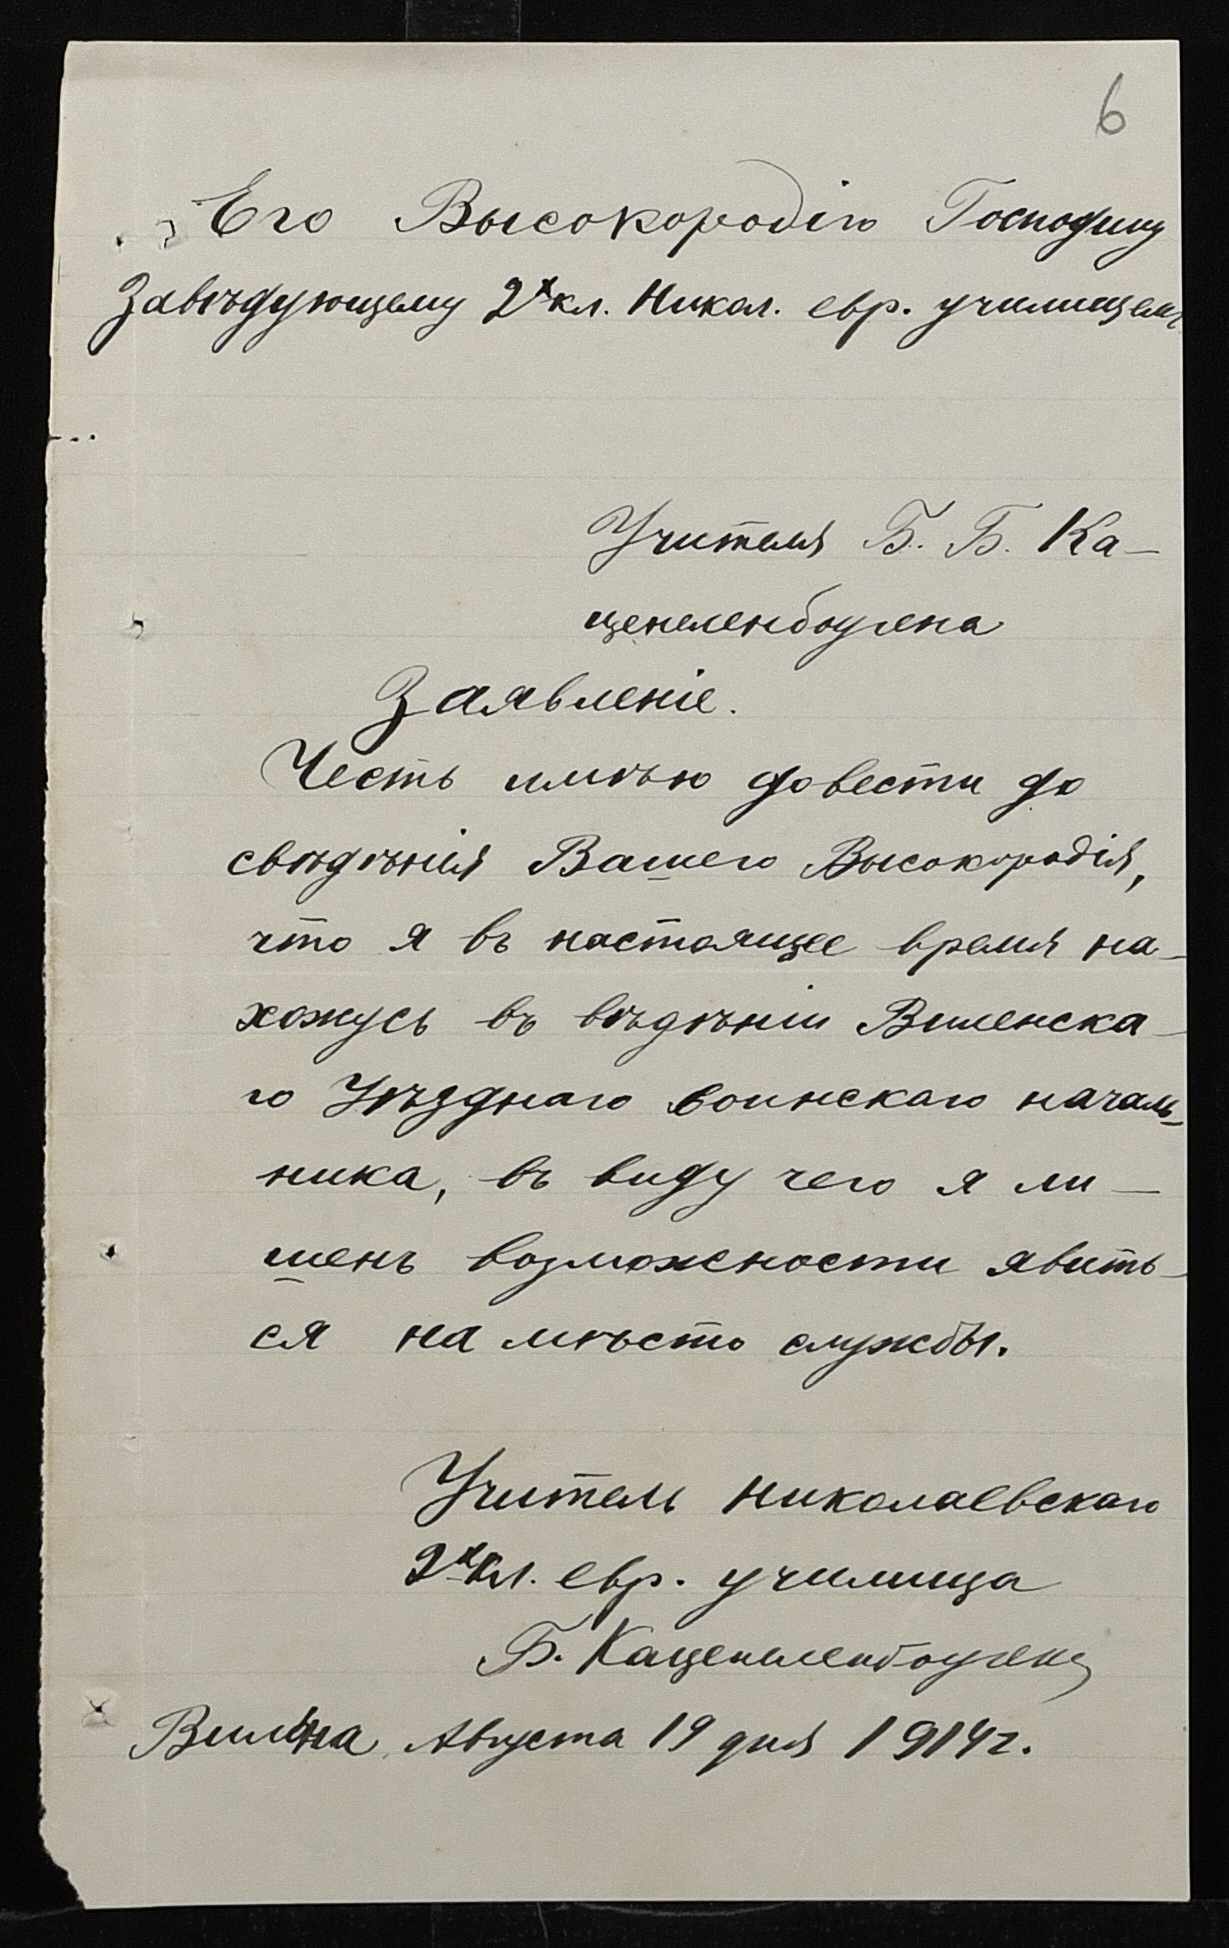 6
Его Высокородію Господину
Завѣдующему 2х кл. Никол. евр. училищемъ
Учителя Б. Б. Ка-
ценеленбогена
Заявленіе.
Честь имѣю довести до
свѣдѣнія Вашего Высокородія,
что я въ настоящее время на-
хожусь въ вѣдѣніи Виленска-
го Уѣзднаго воинскаго началь-
ника, въ виду чего я ли-
шенъ возможности явить-
ся на мѣсто службы.
Учитель Николаевскаго
2х кл. евр. училища
Б. Каценеленбогенъ
Вильна, Августа 19 дня 1914 г.